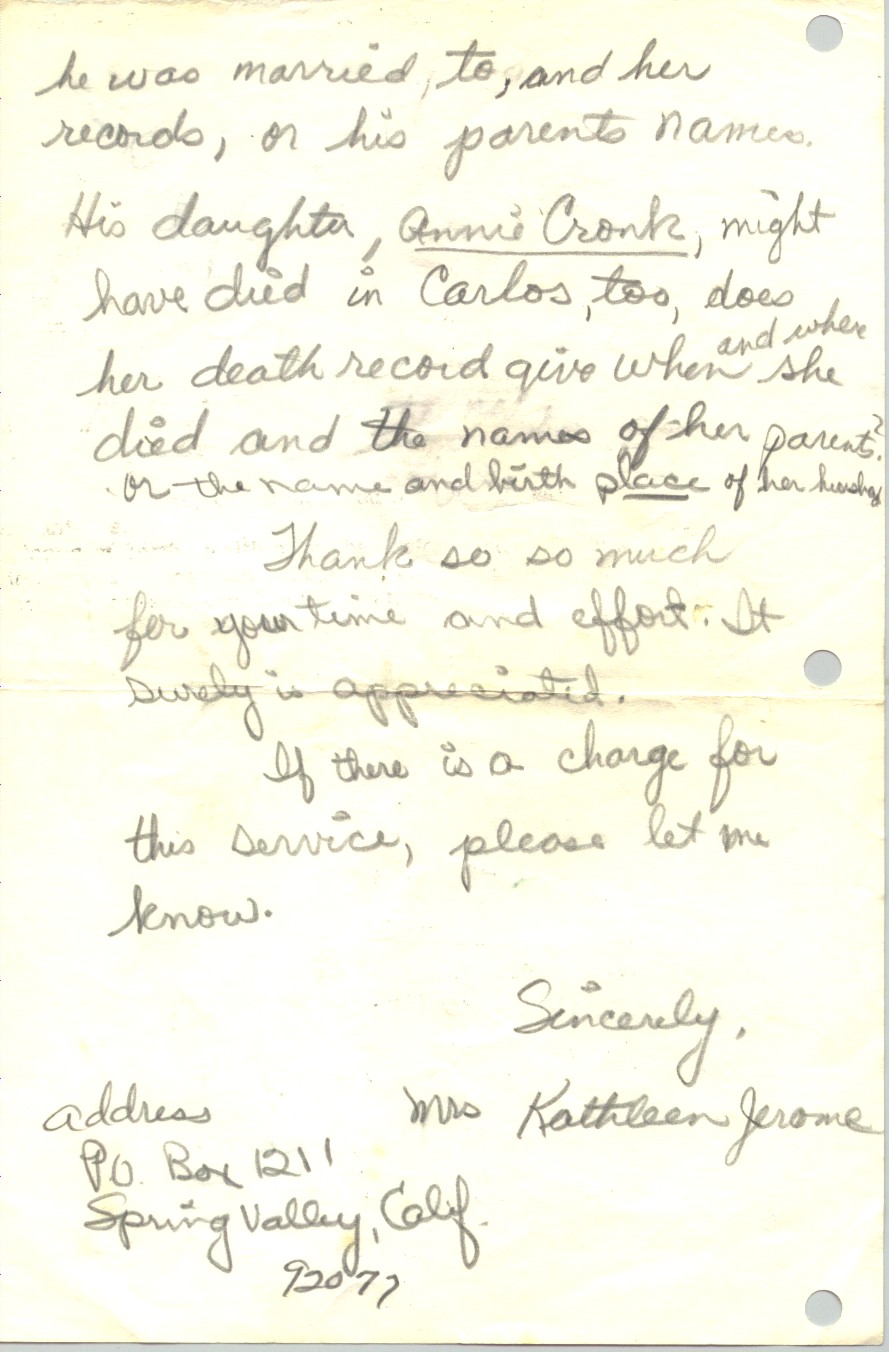 he was married, to, and her
records, or his parents names.
His daughter, Annie Cronk, might
have died in Carlos, too, does
her death record give when and where she
died and the names of her parents?
or the name and birth place of her
Thank so so much
for your time and effort. It
surely is appreciated.
If there is a charge for
this service, please let me
know.
Sincerely,
Mrs Kathleen Jerome
address
PO. Box 1211
Spring Valley, Calif.
92077